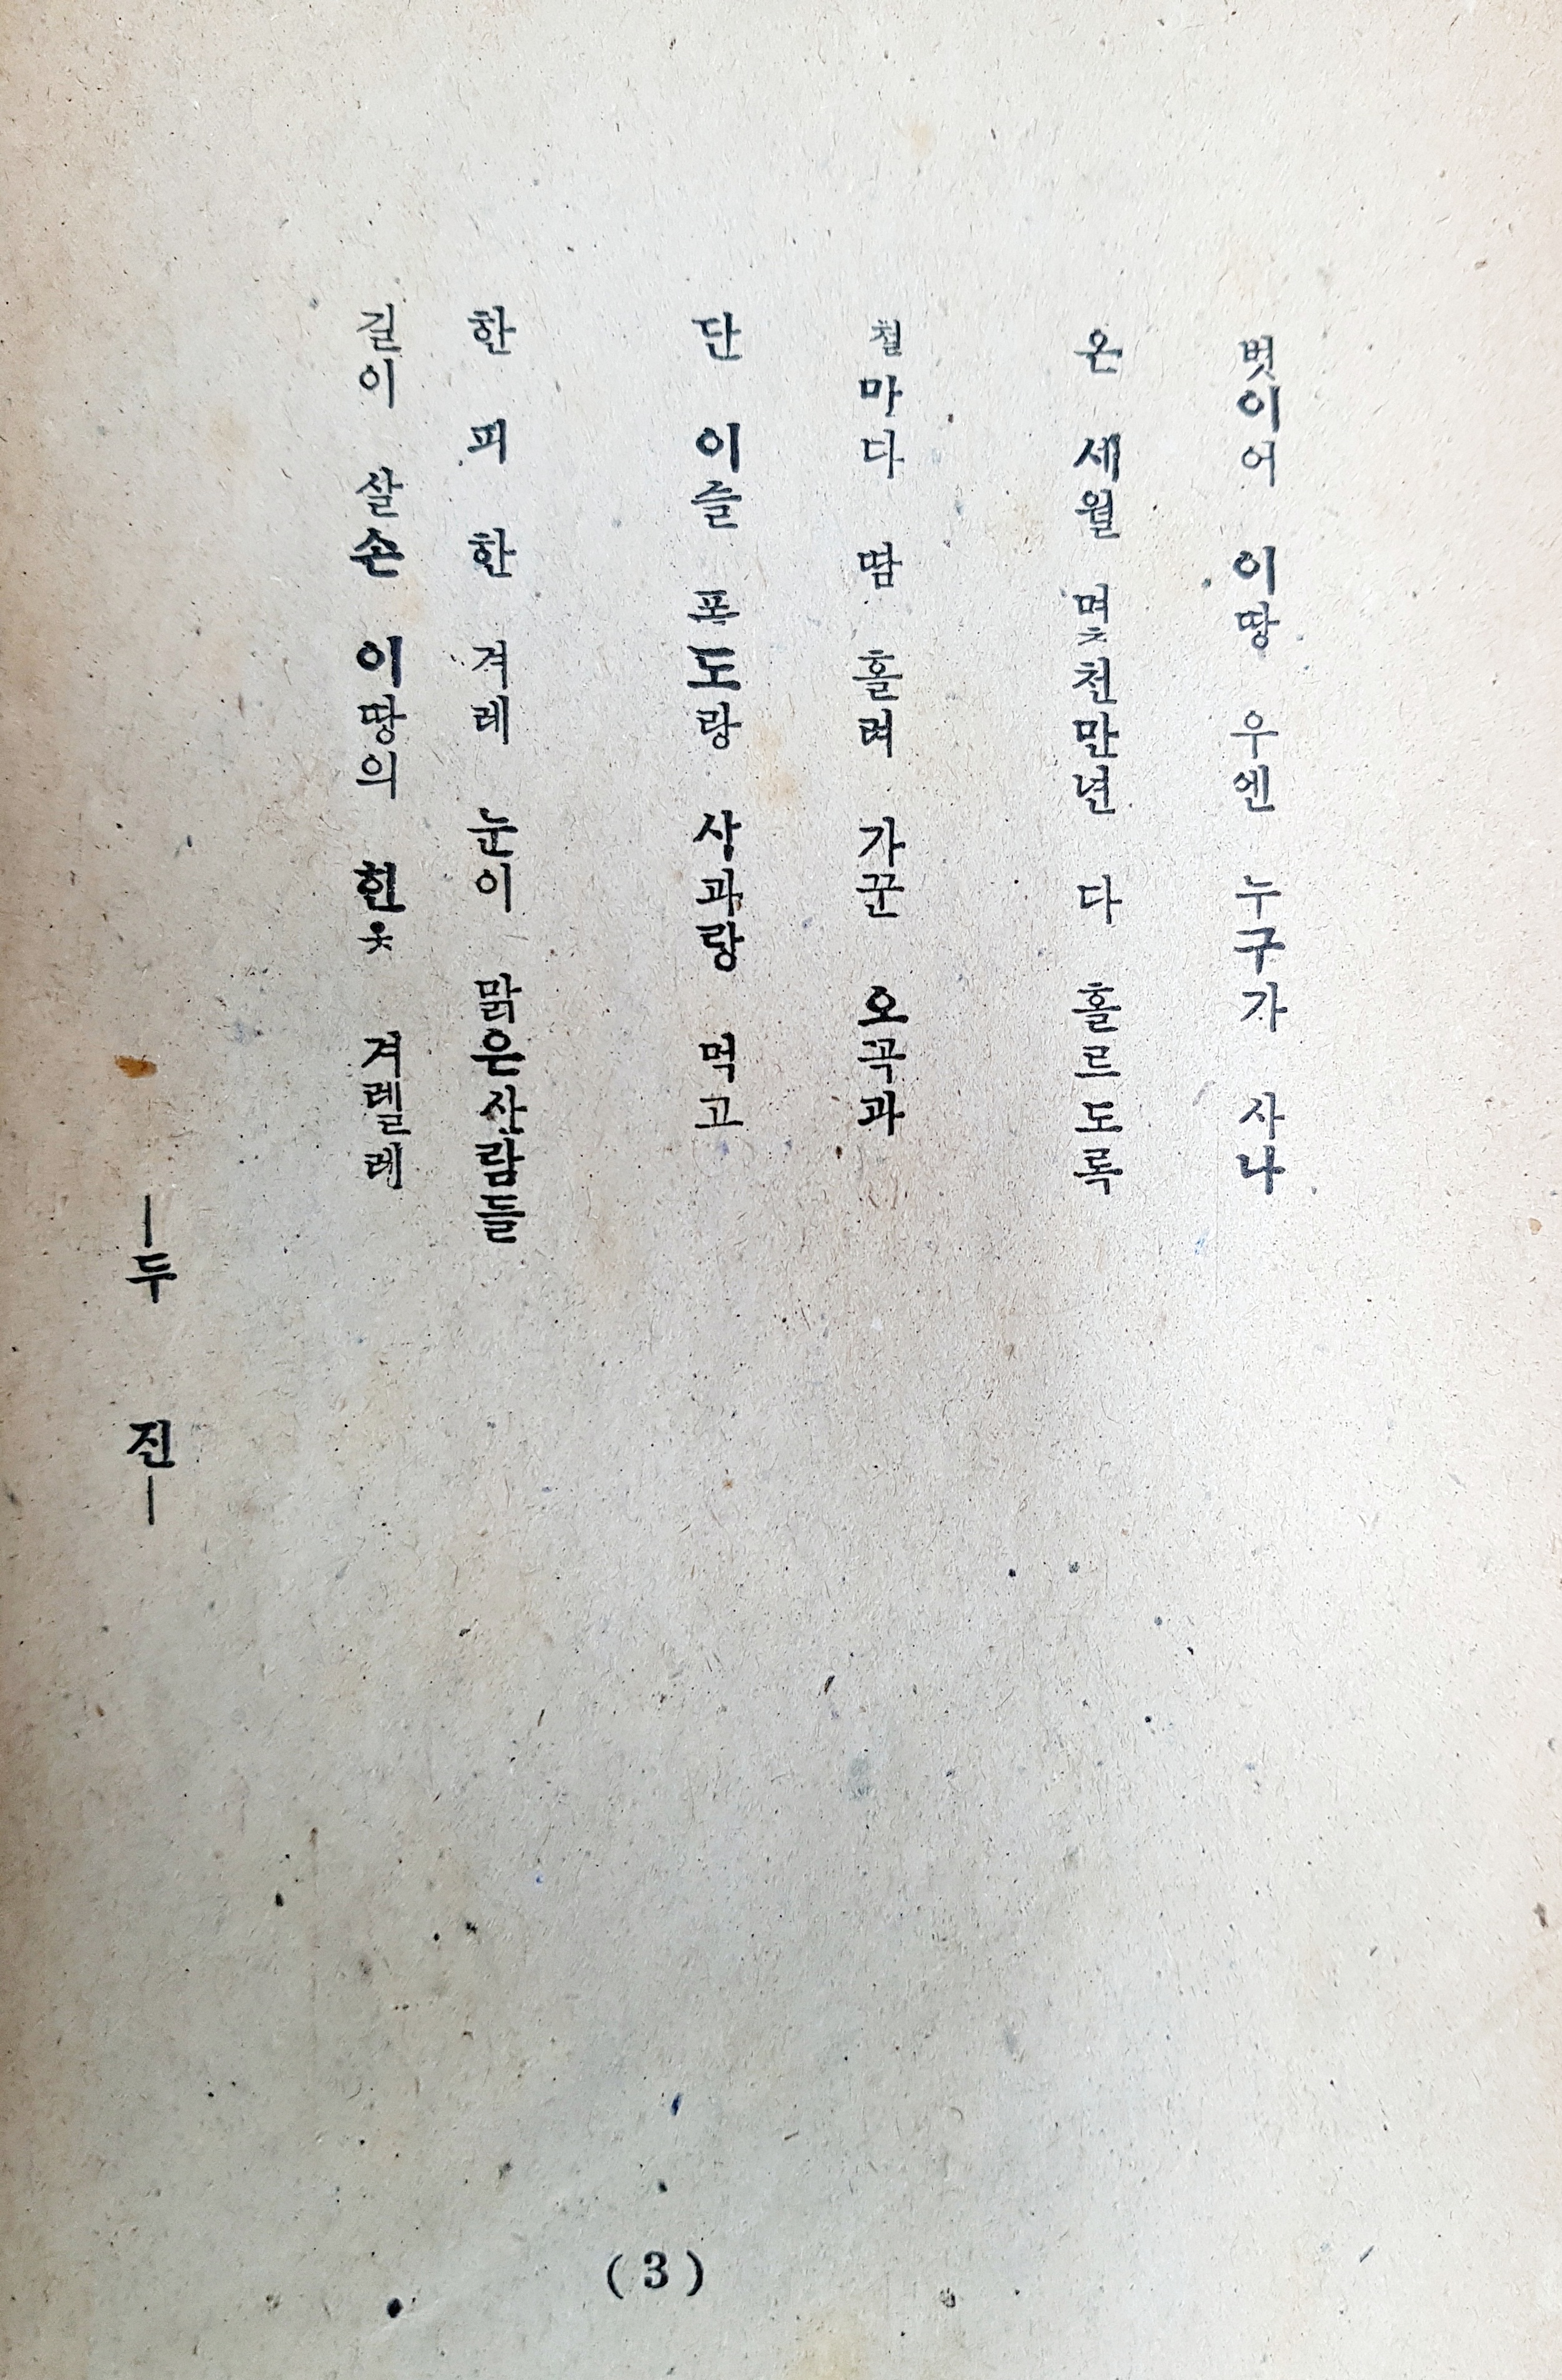 벗이어 이땅 우엔 누구가 사나
온 세월 몇천만년 다 흘르도록
철마다 땀 흘려 가꾼 오곡과
단 이슬 포도랑 사과랑 먹고
한 피 한 겨레 눈이 맑은사람들
길이 살손 이땅의 힌옷 겨렐레
—두 진—
(3)